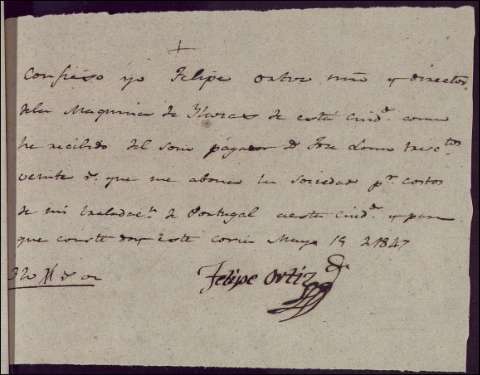 +
Confieso yo Felipe y director
de la Maquina de de esta Ciud.^d como
he recibido del Señor pagador D Jose tresc^tos
veinte r.^s que me abona la sociedad p.^r costos
de mi traslac.^n de Portugal a esta Ciud.^d y para
que conste doy Este Mayo 19 1847
320
Felipe Ortiz